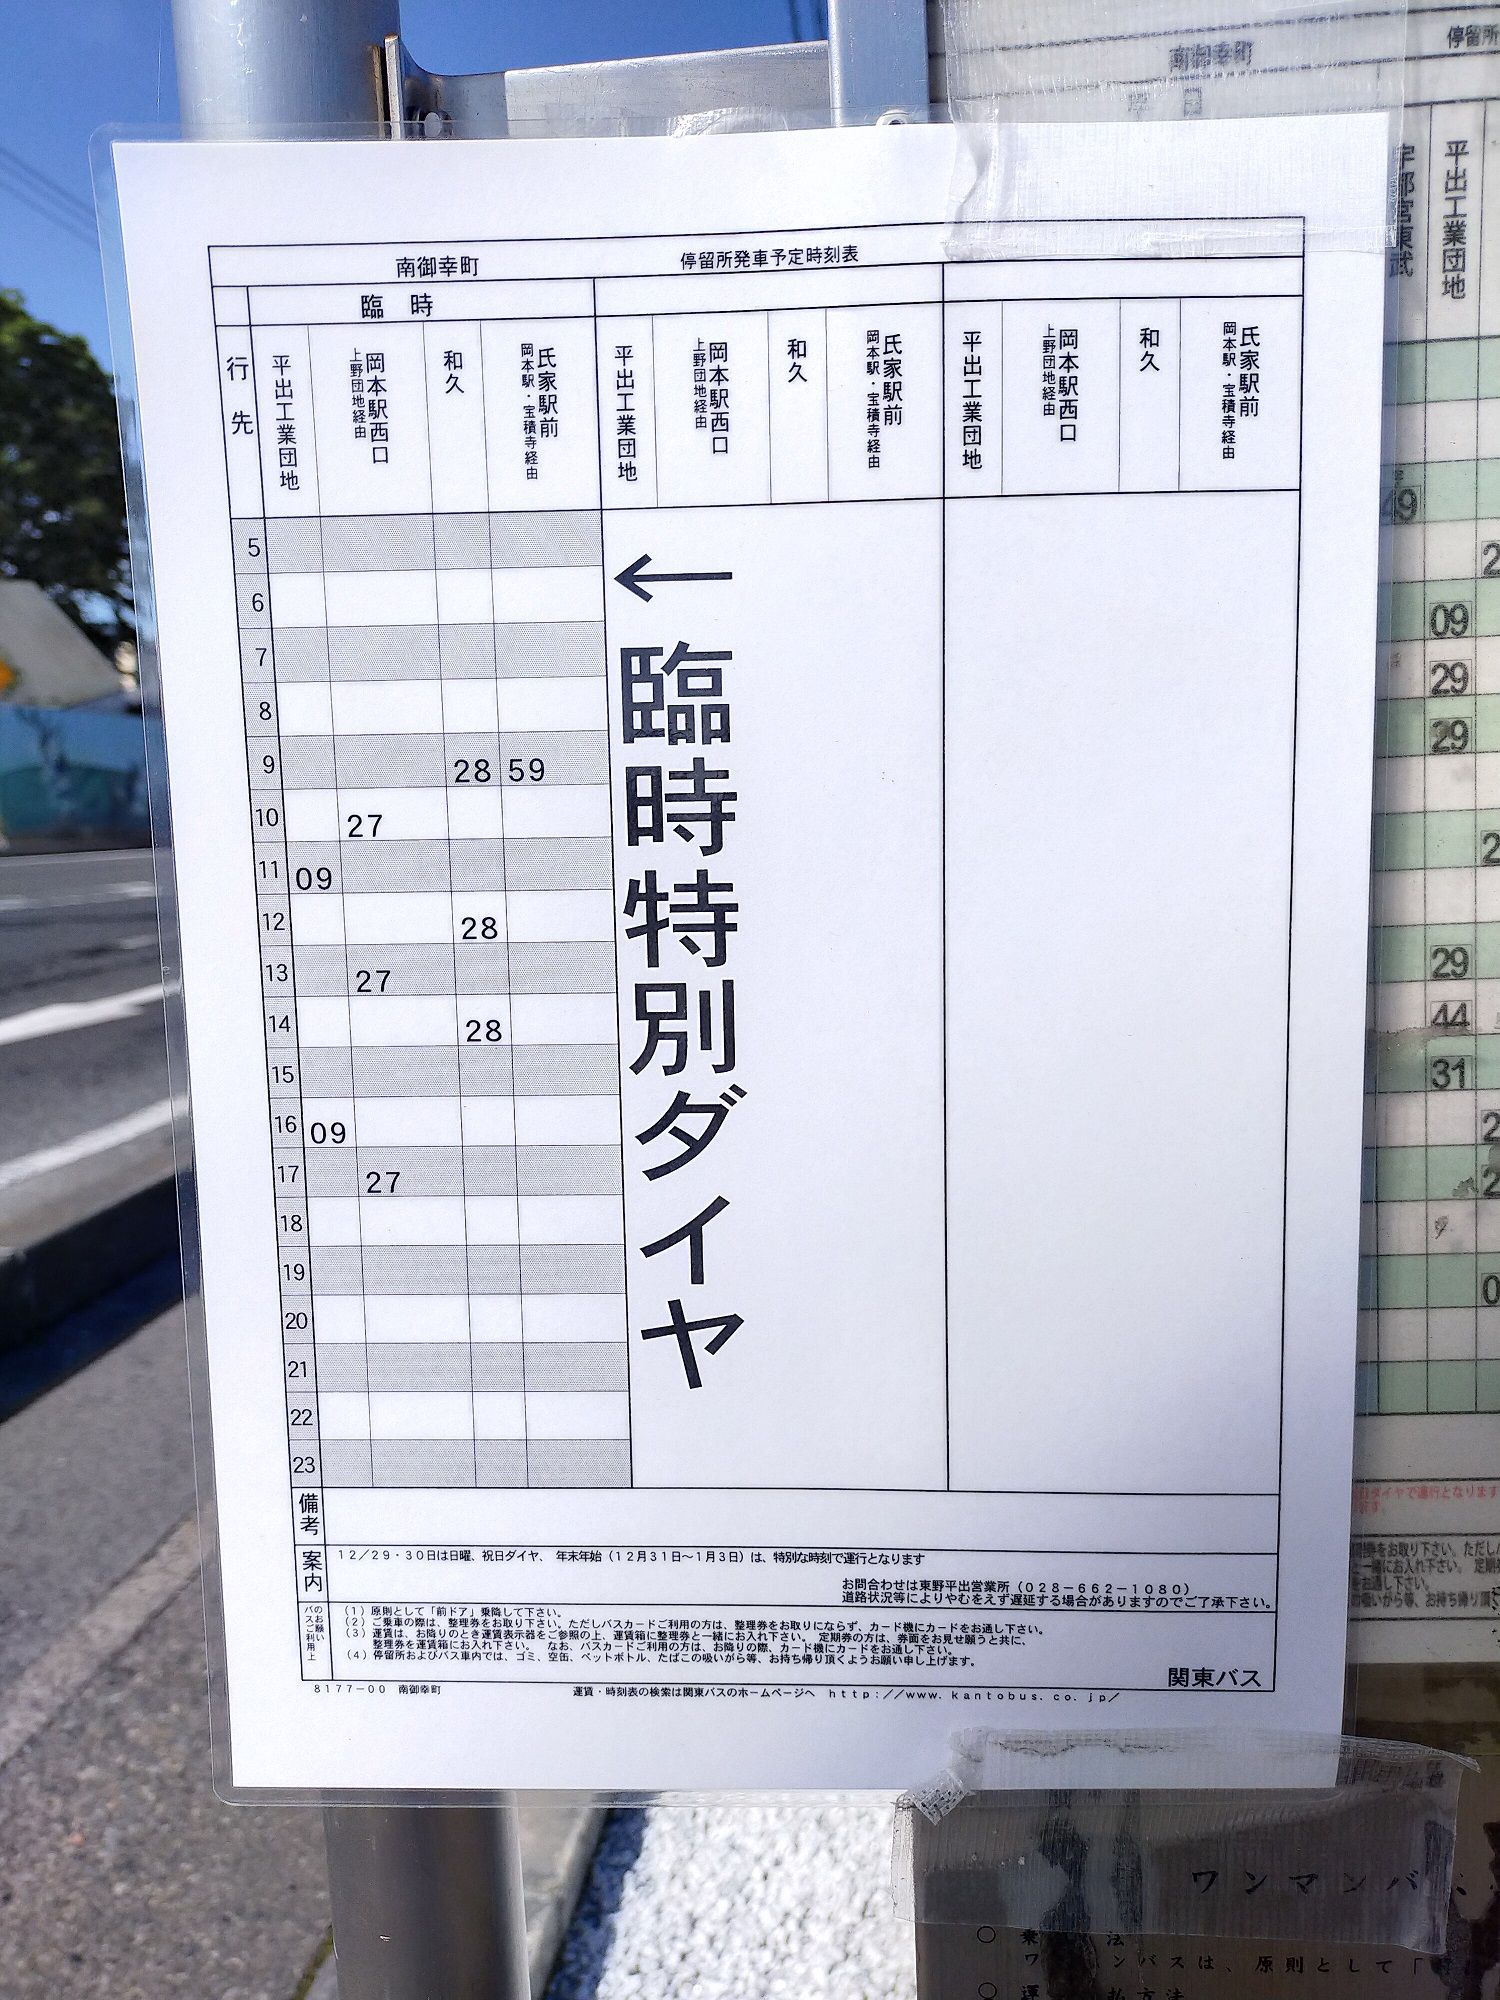 南御幸町 停留所発車予定時刻表
臨 時
行先
平出工業団地
岡本駅西口
上野団地経由
和久
氏家駅前
岡本駅・宝積寺経由
平出工業団地
岡本駅西口
上野団地経由
和久
氏家駅前
岡本駅・宝積寺経由
平出工業団地
岡本駅西口
上野団地経由
和久
氏家駅前
岡本駅・宝積寺経由
5
6
7
8
9 28 59
10 27
11 09
12 28
13 27
14 28
15
16 09
17 27
18
19
20
21
22
23
←臨時特別ダイヤ
備考
案内
12/29・30日は日曜、祝日ダイヤ、 年末年始(12月31日~1月3日)は、特別な時刻で運行となります
お問合わせは東野平出営業所(028-662-1080)
道路状況等によりやむをえず遅延する場合がありますのでご了承下さい。
バスご利用上のお願い
(1)原則として「前ドア」乗降して下さい。
(2)ご乗車の際は、整理券をお取り下さい。ただしバスカードご利用の方は、整理券をお取りにならず、カード機にカードをお通し下さい。
(3)運賃は、お降りのとき運賃表示器をご参照の上、運賃箱に整理券と一緒にお入れ下さい。 定期券の方は、券面をお見せ願うと共に、
整理券を運賃箱にお入れ下さい。 なお、バスカードご利用の方は、お降りの際、カード機にカードをお通し下さい。
(4)停留所およびバス車内では、ゴミ、空缶、ペットボトル、たばこの吸いがら等、お持ち帰り頂くようお願い申し上げます。
関東バス
8177-00 南御幸町 運賃・時刻表の検索は関東バスのホームページへ http://www.kantobus.co.jp/
南御幸町
停留所
宇都宮東武
平出工業団地
49
09
29
29
29
44
31
ワンマンバ